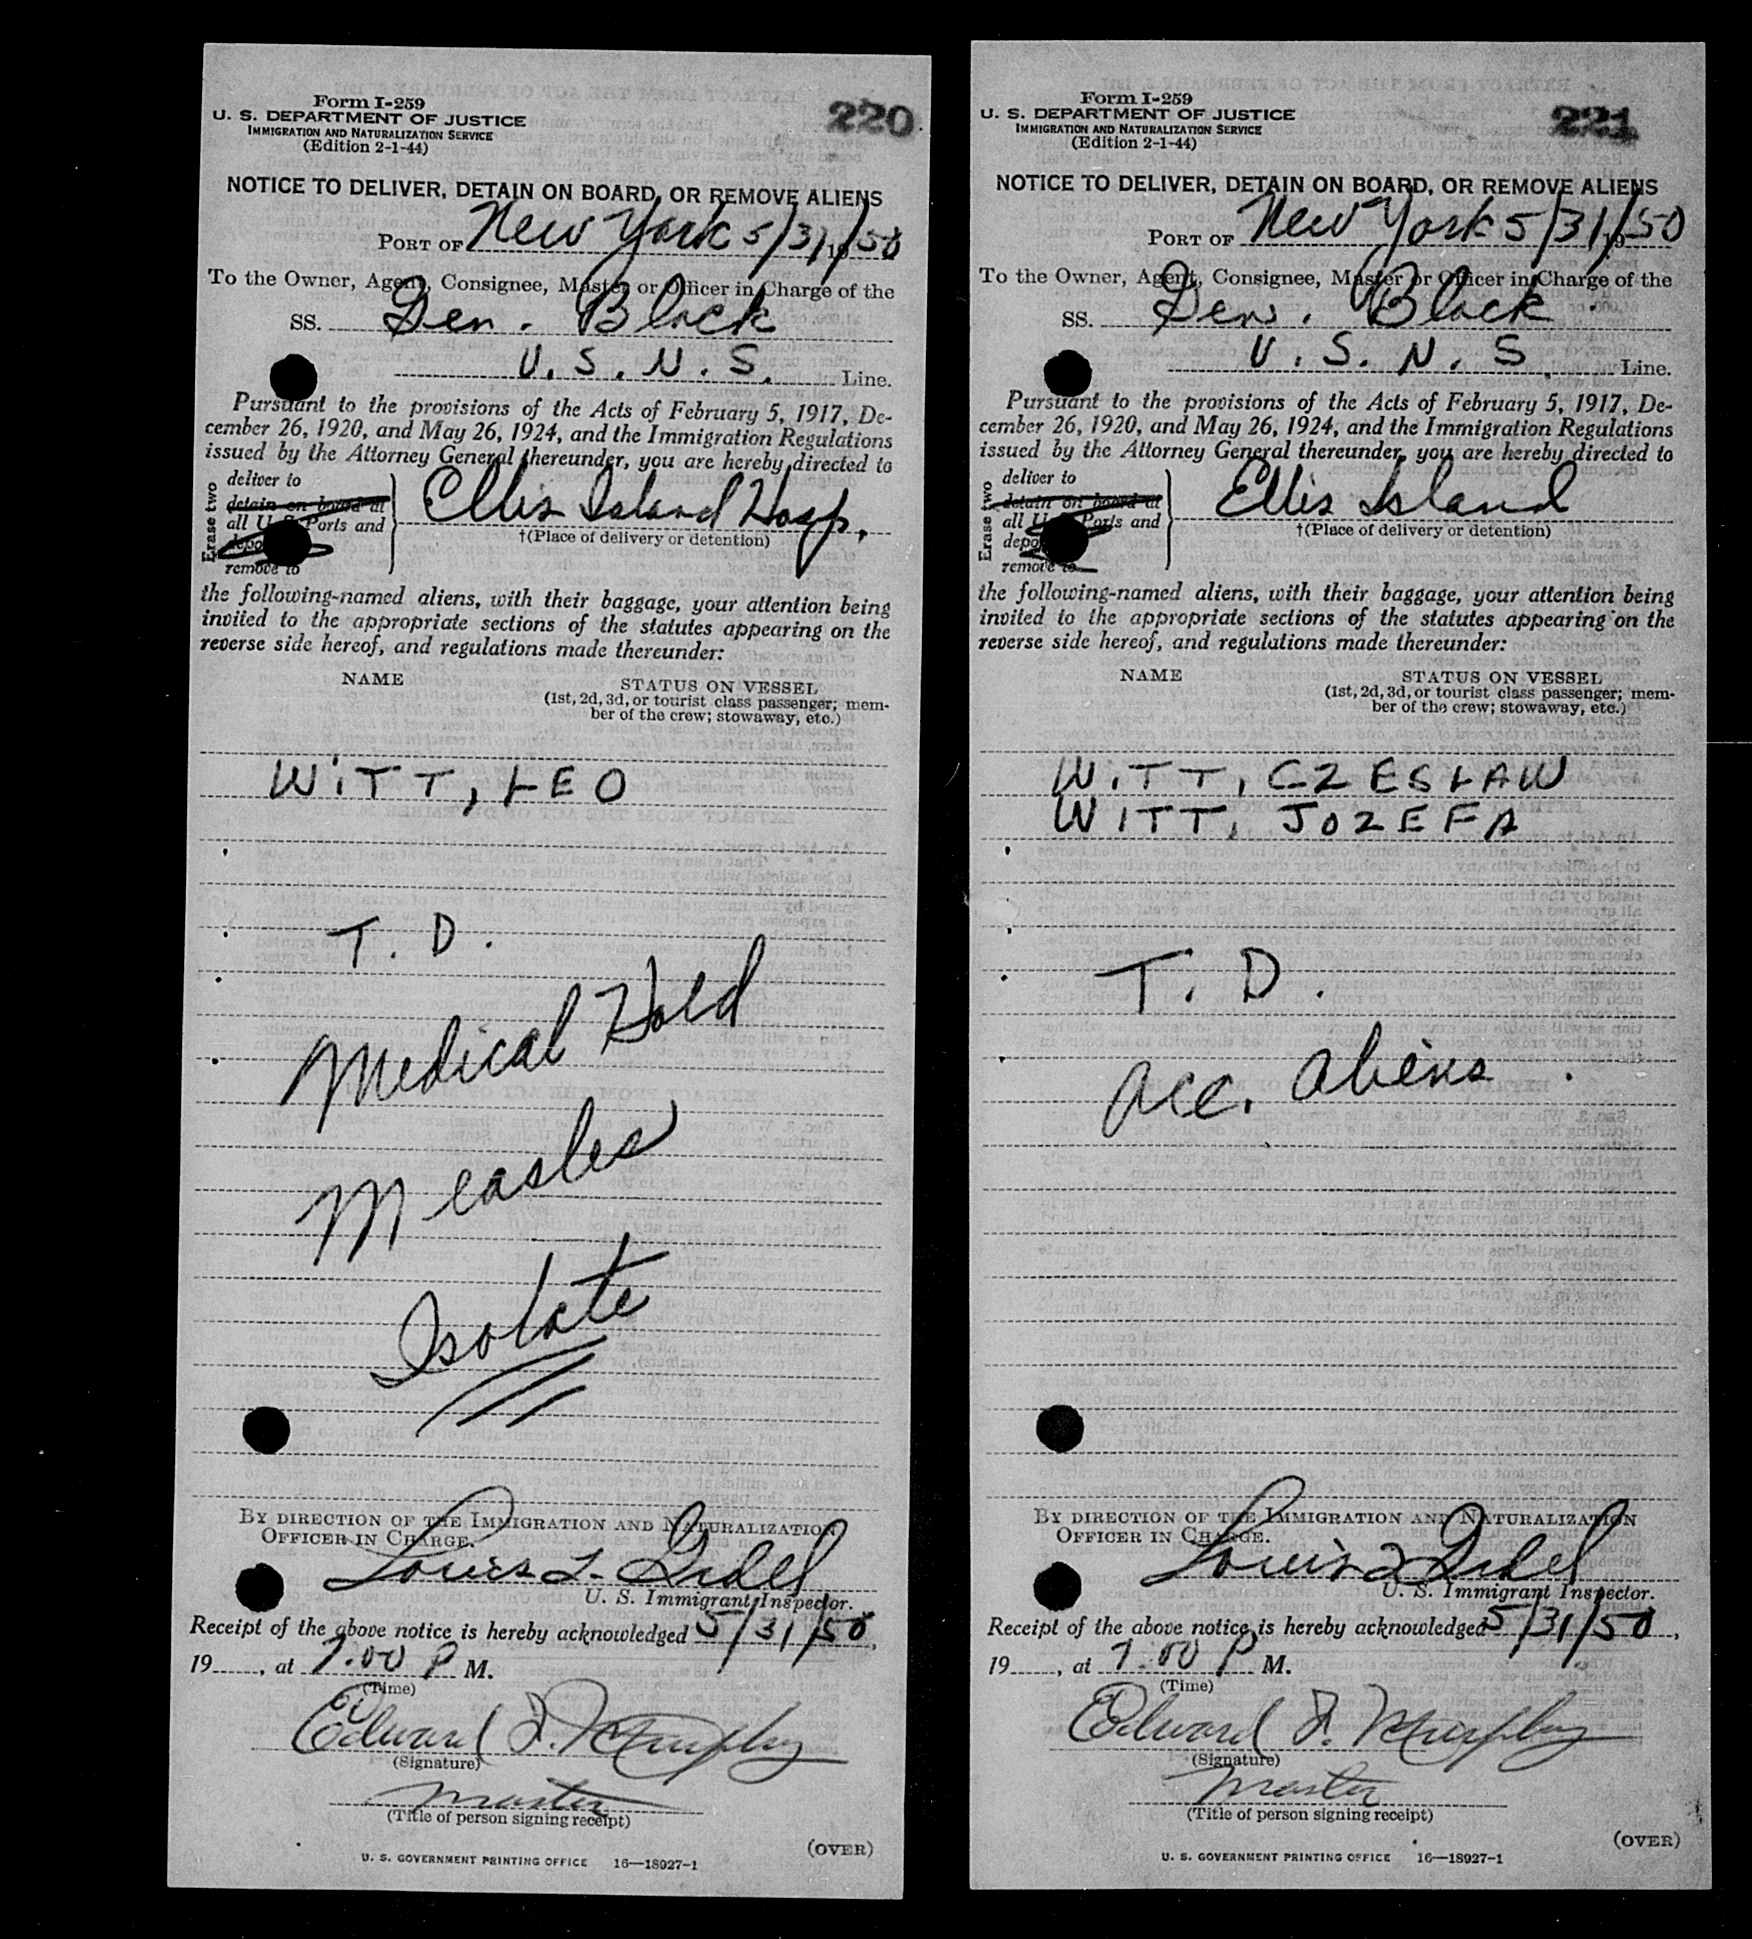 Form I-259
220
U. S. DEPARTMENT OF JUSTICE
IMMIGRATION AND NATURALIZATION SERVICE
(Edition 2-1-44)
NOTICE TO DELIVER, DETAIN ON BOARD, OR REMOVE ALIENS
PORT OF New York 5/31/50
To the Owner, Agent, Consignee, Master or Officer in Charge of the
SS. Gen. Black
U. S. N. S. Line.
Pursuant to the provisions of the Acts of February 5, 1917, De-
cember 26, 1920, and May 26, 1924, and the Immigration Regulations
issued by the Attorney General thereunder, you are hereby directed to
Erase two
deliver to
detain on board at
all U. S. Ports and
remove to
Ellis Island Hosp.
†(Place of delivery or detention)
the following-named aliens, with their baggage, your attention being
invited to the appropriate sections of the statutes appearing on the
reverse side hereof, and regulations made thereunder:
NAME
STATUS ON VESSEL
(1st, 2d, 3d, or tourist class passenger; mem-
ber of the crew; stowaway, etc.)
WITT, LEO
T. D.
Medical Hold
Measles
Isolate
BY DIRECTION OF THE IMMIGRATION AND NATURALIZATION
OFFICER IN CHARGE.
Louis
U. S. Immigrant Inspector.
Receipt of the above notice is hereby acknowledged 5/31/50,
19, at 7:00 P M.
(Time)
Edward J. Murphy
(Signature)
Master
(Title of person signing receipt)
(OVER)
U. S. GOVERNMENT PRINTING OFFICE 16—18927-1
Form I-259
221
U. S. DEPARTMENT OF JUSTICE
IMMIGRATION AND NATURALIZATION SERVICE
(Edition 2-1-44)
NOTICE TO DELIVER, DETAIN ON BOARD, OR REMOVE ALIENS
PORT OF New York 5/31/19 50
To the Owner, Agent, Consignee, Master or Officer in Charge of the
SS. Gen. Black
U. S. N. S. Line.
Pursuant to the provisions of the Acts of February 5, 1917, De-
cember 26, 1920, and May 26, 1924, and the Immigration Regulations
issued by the Attorney General thereunder, you are hereby directed to
Erase two
deliver to
detain on board at
all U. S. Ports and
remove to
Ellis Island
†(Place of delivery or detention)
the following-named aliens, with their baggage, your attention being
invited to the appropriate sections of the statutes appearing on the
reverse side hereof, and regulations made thereunder:
NAME
STATUS ON VESSEL
(1st, 2d, 3d, or tourist class passenger; mem-
ber of the crew; stowaway, etc.)
WITT, CZESŁAW
WITT, JOZEFA
T. D.
acc. aliens
BY DIRECTION OF THE IMMIGRATION AND NATURALIZATION
OFFICER IN CHARGE.
Louis
U. S. Immigrant Inspector.
Receipt of the above notice is hereby acknowledged 5/31/50,
19, at 7:00 P M.
(Time)
Edward J. Murphy
(Signature)
Master
(Title of person signing receipt)
(OVER)
U. S. GOVERNMENT PRINTING OFFICE 16—18927-1